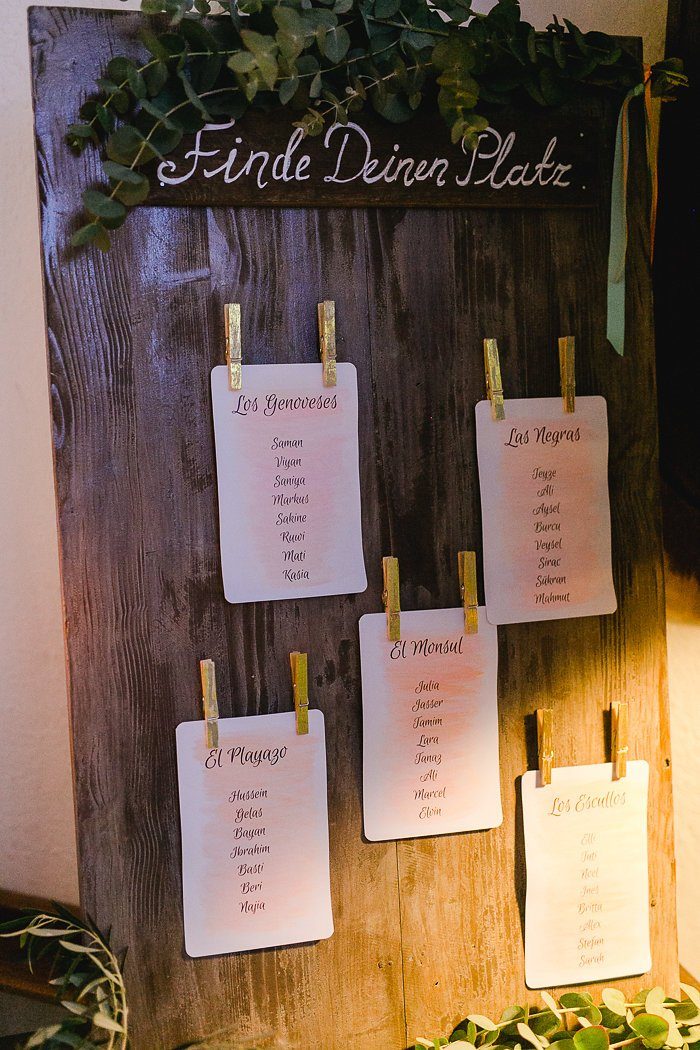 Finde Deinen Platz
Los Genoveses
Saman
Viyan
Saniya
Markus
Sakine
Ruwi
Mati
Kasia
Las Negras
Teyze
Ali
Aysel
Burcu
Veysel
Siraç
Sükran
Mahmut
El Monsul
Julia
Jasser
Tamim
Lara
Tanaz
Ali
Marcel
Elvin
El Playazo
Hussein
Gelas
Bayan
Ibrahim
Basti
Beri
Najia
Los Escullos
Elli
Juti
Noel
Ines
Britta
Alex
Stefan
Sarah